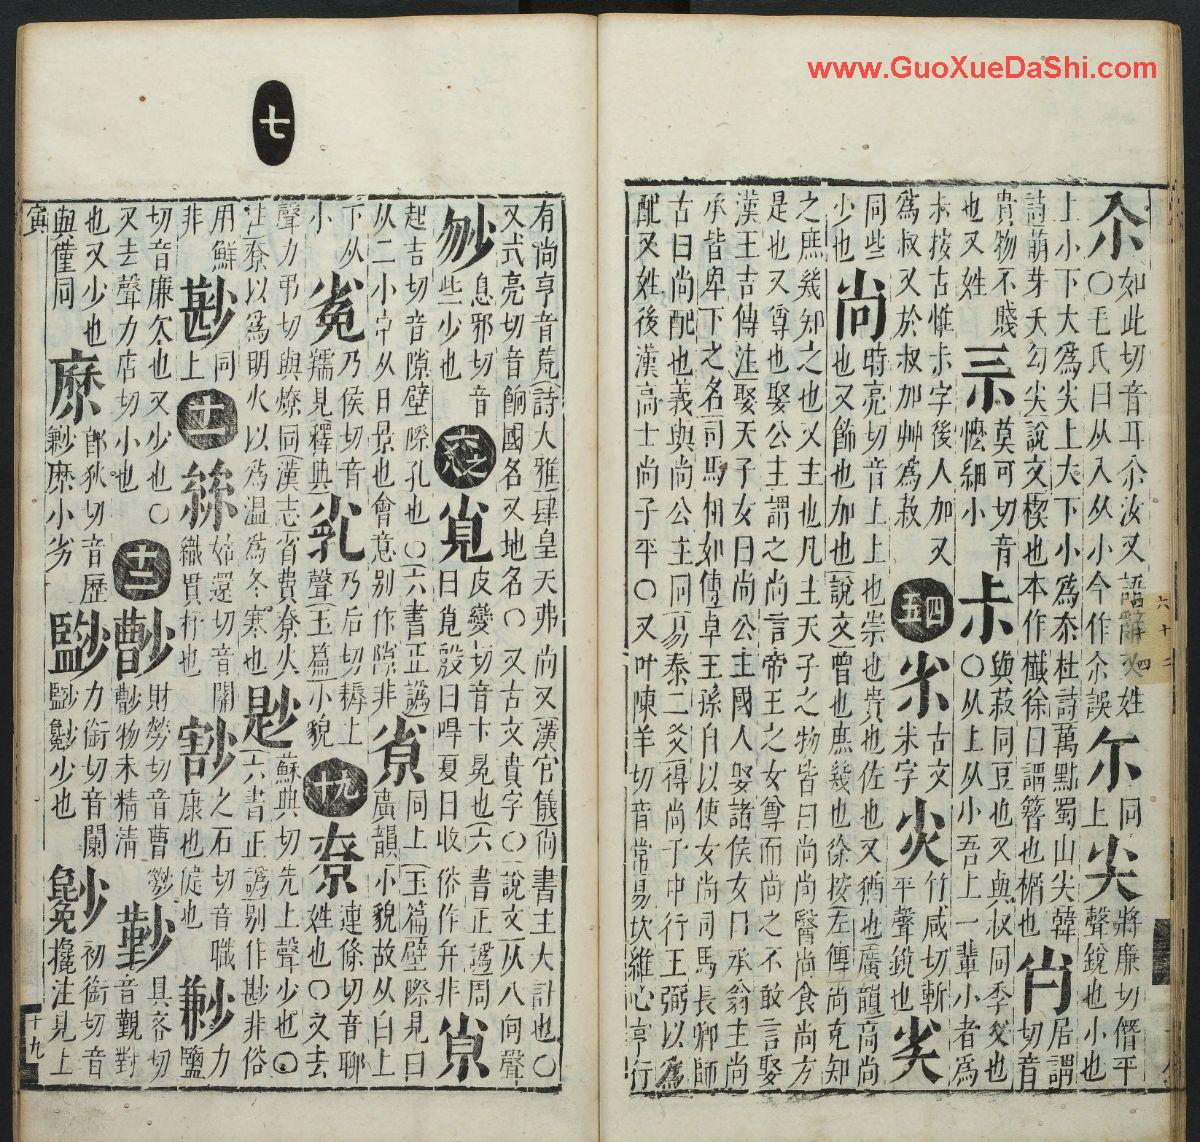 www.GuoXueDaShi.com
尒如此切音耳尒汝又語辭又姓
〇毛氏曰从入从小今作尒誤尓同上尖將廉切僭平聲銳也小也
上小下大爲尖上大下小爲夵杜詩萬點蜀山尖韓
詩萌芽夭勾尖說文楔也本作櫼徐曰謂簪也楯也肖居謂切音
貴物不賤也又姓莫可切音懡細小尗與菽同豆也又與叔同季父也
〇从上从小吾上一輩小者爲
尗按古惟尗字後人加又
爲叔又於叔加艸爲菽四五古文米字竹咸切斬平聲銳也
同些少也尚時亮切音上上也崇也貴也佐也又猶也廣韻高尚
也又飾也加也說文曾也庶幾也徐按左傳尚克知
之庶幾知之也又主也凡主天子之物皆曰尚尚醫尚食尚方
是也又尊也娶公主謂之尚言帝王之女尊而尚之不敢言娶
漢王吉傳注娶天子女曰尚公主國人娶諸侯女曰承翁主尚
承皆卑下之名司馬相如傳卓王孫自以使女尚司馬長卿師
古曰尚配也義與尚公主同易泰二爻得尚于中行王弼以爲
配又姓後漢高士尚子平〇又叶陳羊切音常易坎維心亨行
七
有尚亨音荒詩大雅肆皇天弗尚又漢官儀尚書主大計也〇
又式亮切音餉國名又地名〇又古文貴字〇說文从八向聲
息邪切音些少也覍皮變切音卞冕也六書正譌周
曰覍殷曰哻夏曰收俗作弁非
起吉切音隙壁際孔也〇六書正譌
从二小㝉从日景也會意别作隙非同上玉篇壁際見曰
廣韻小貌故从白上下从小
乃侯切音羺見釋典乃后切耨上聲玉篇小貌十九尞連條切音聊姓也〇又去
聲力弔切與燎同漢志省費尞火
注尞以爲明火以爲温爲冬寒也尟蘇典切先上聲少也〇六書正譌别作尠非俗
用鮮非尠同上十一姑還切音關織貫杼也之石切音職㡿也㢟也力鹽
切音廉欠也又少也〇
又去聲力店切小也十三財勞切音曹物未精清具吝切音覲對
也又少也與僅同郎狄切音歷小劣力銜切音闌少也初銜切音攙注見上
寅
十九